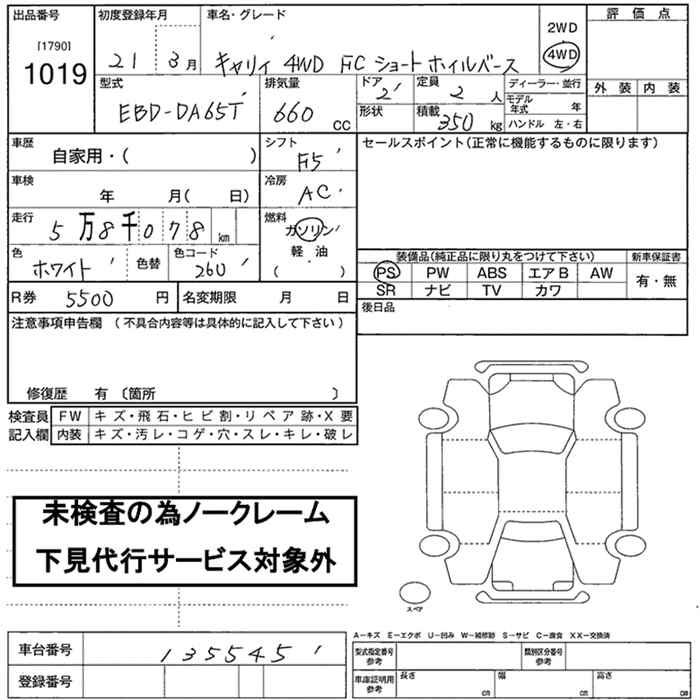 出品番号 初度登録年月 車名・グレード 評価点
[1790] 2WD
1019 21 3月 キャリイ 4WD FC ショートホイルバース 4WD
型式 排気量 ドア 定員 ディーラー・並行 外装 内装
EBD-DA65T 660 CC 2 2 人 モデル年式 年
形状 積載 350 kg ハンドル 左・右
車歴 シフト セールスポイント(正常に機能するものに限ります)
自家用・( ) F5
車検 冷房
年 月( 日) AC
走行 燃料
5万8千078 km ガソリン
色 色替 色コード 軽油 装備品(純正品に限り丸をつけて下さい) 新車保証書
ホワイト 26U ( ) PS PW ABS エアB AW 有・無
R券 5500 円 名変期限 月 日 SR ナビ TV カワ
注意事項申告欄 (不具合内容等は具体的に記入して下さい) 後日品
修復歴 有 〔箇所 〕
検査員 FW キズ・飛石・ヒビ割・リペア跡・X要
記入欄 内装 キズ・汚レ・コゲ・穴・スレ・キレ・破レ
未検査の為ノークレーム
下見代行サービス対象外
スペア
A−キズ E−エクボ U−凹み W−補修跡 S−サビ C−腐食 XX−交換済
車台番号 135545 型式指定番号 参考 類別区分番号 参考
登録番号 車庫証明用 参考 長さ cm 幅 cm 高さ cm